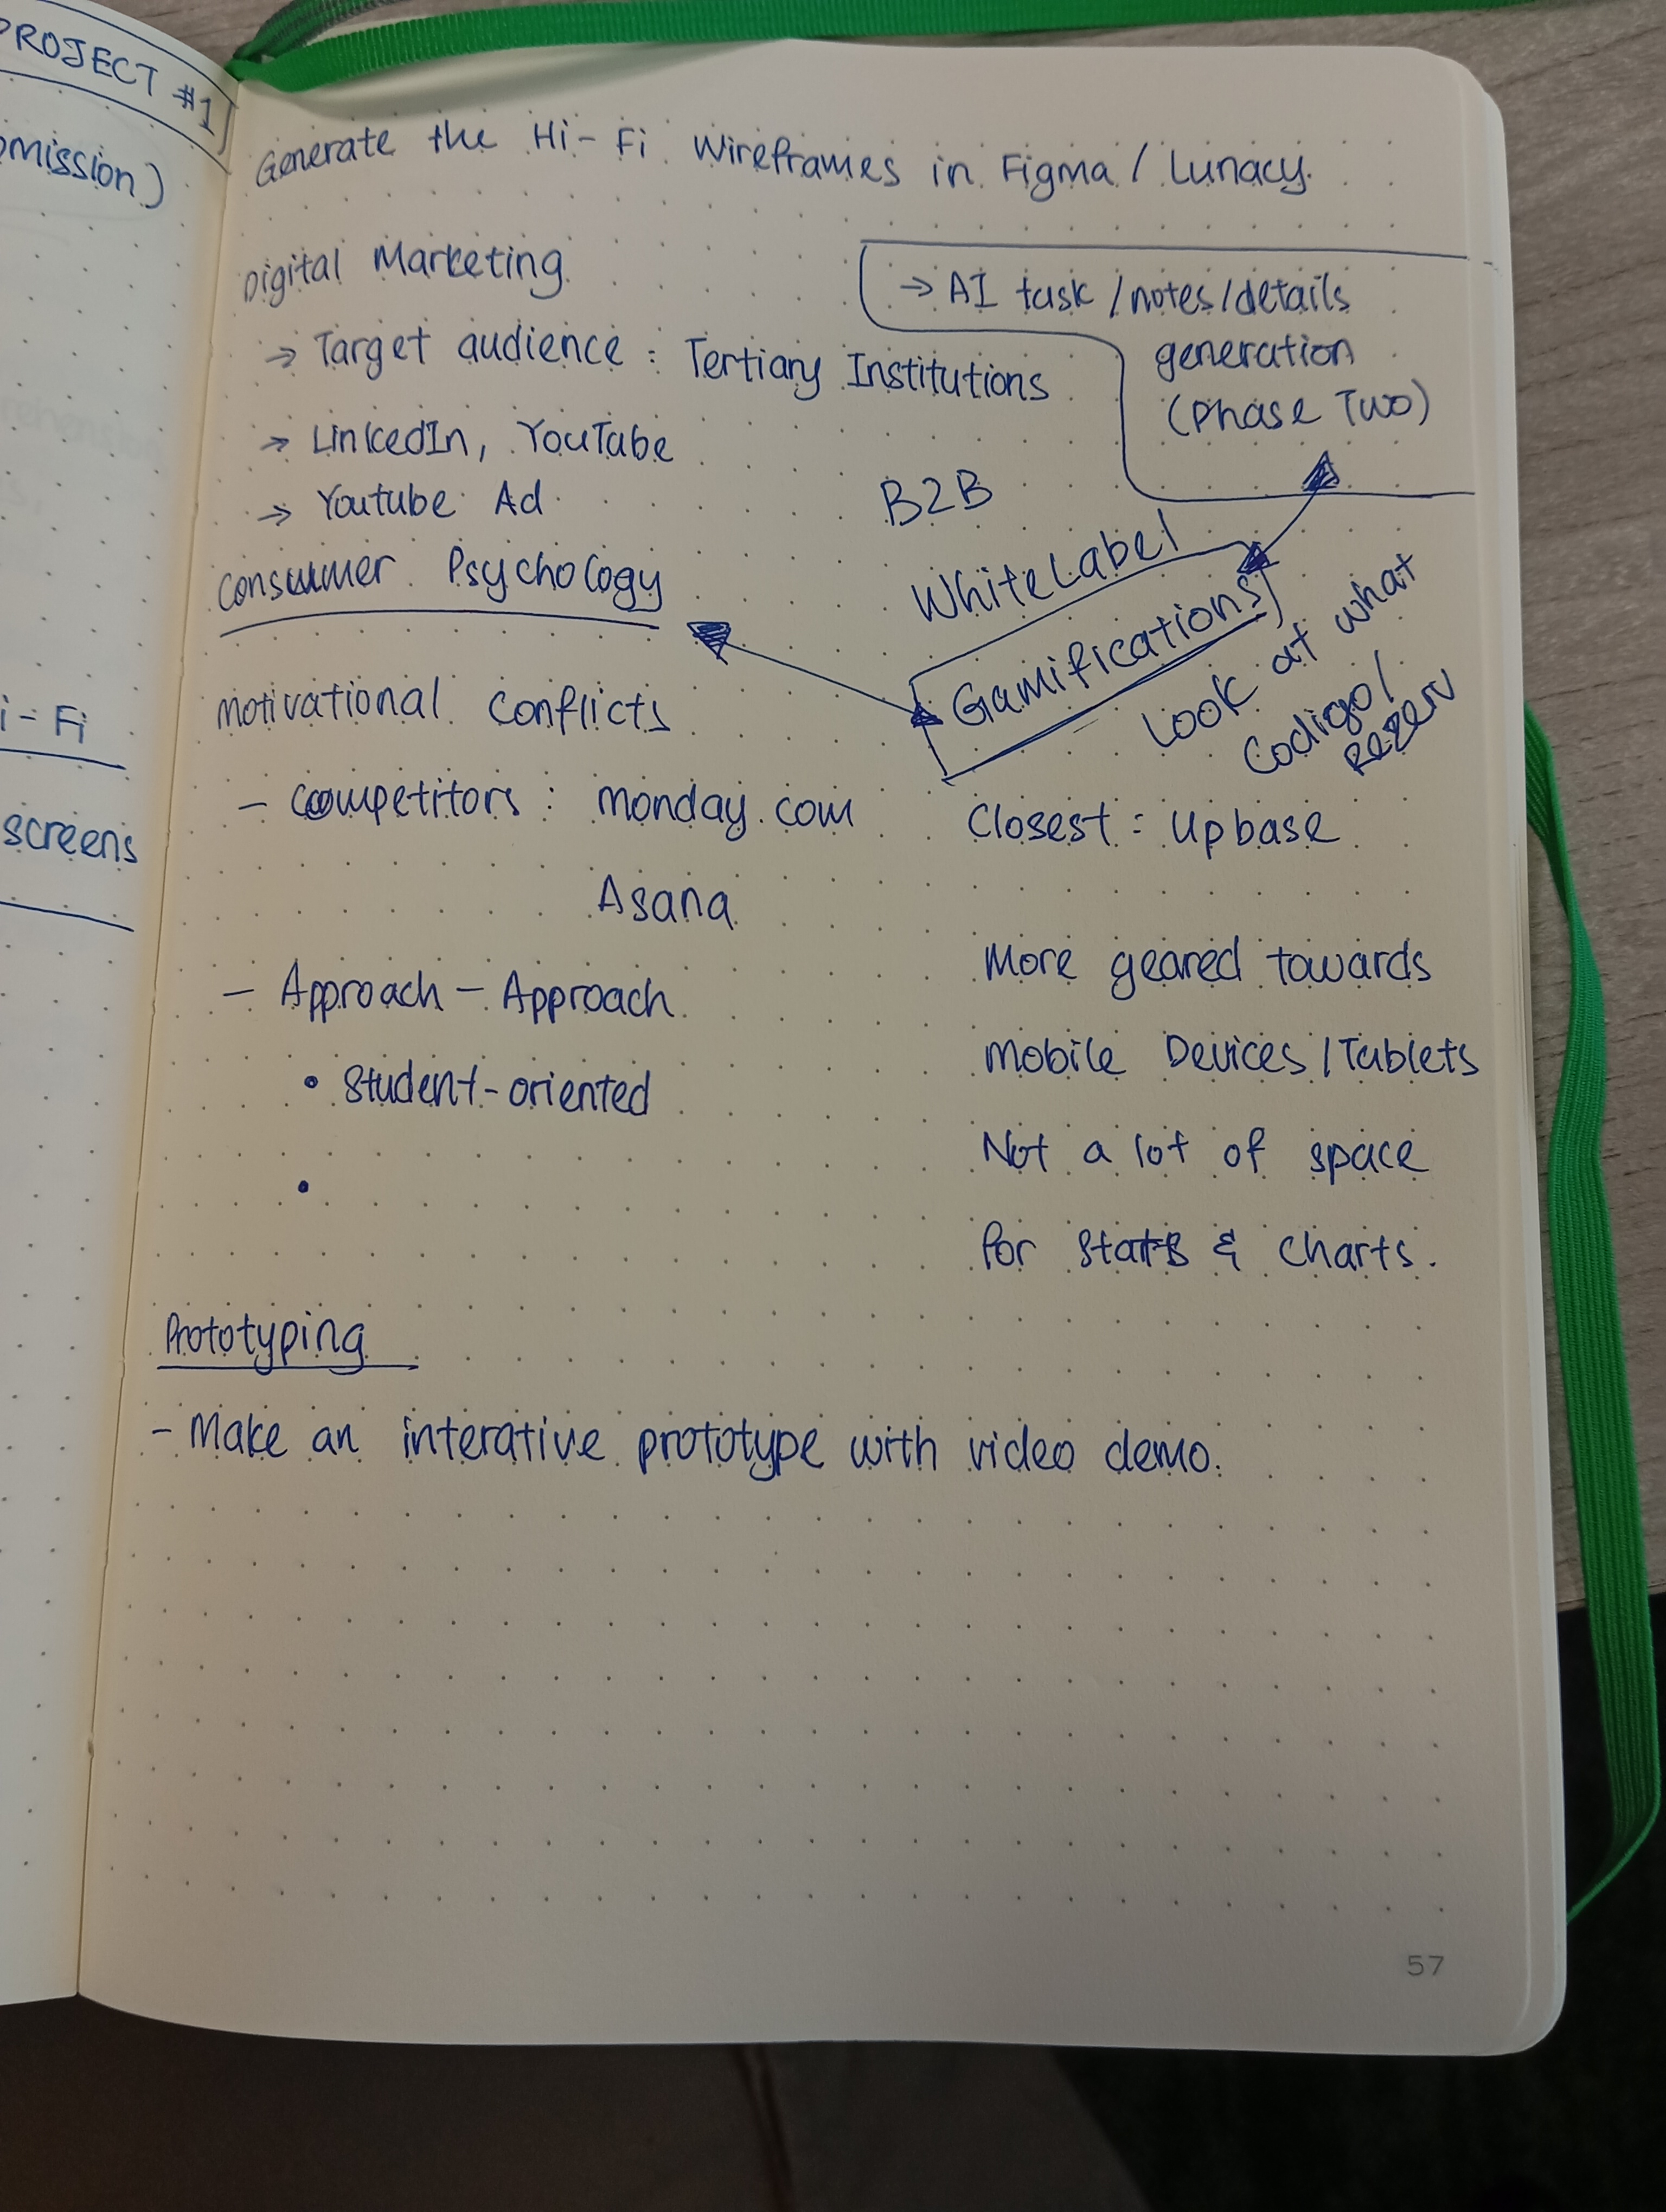 PROJECT #1
mission)
i-Fi
screens
Generate the Hi-Fi Wireframes in Figma / Lunacy.
Digital Marketing
→ Target audience : Tertiary Institutions
→ LinkedIn, YouTube
→ Youtube Ad
→ AI task /notes/details
generation
(Phase Two)
B2B
WhiteLabel
Gamifications
Look at what
Codigo/
Rezerv
Consumer Psychology
Motivational Conflicts
- Competitors : monday.com
Asana
Closest : Upbase
- Approach - Approach
• Student-oriented
•
More geared towards
Mobile Devices / Tablets
Not a lot of space
for stats & charts.
Prototyping
- Make an interative prototype with video demo.
57